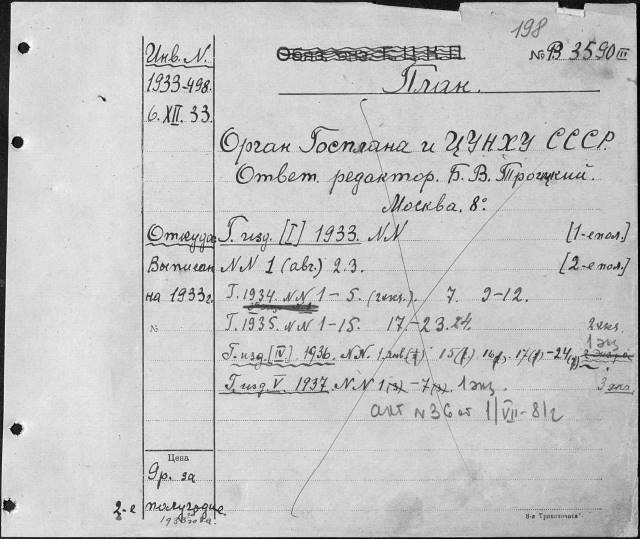 198
Инв. N.
№ В 3590 III
План.
1933-498.
6. XII. 33.
Орган Госплана и ЦУНХУ СССР.
Ответ. редактор. Б. В. Троицкий.
Москва. 8º.
Откуда Г. изд. [I] 1933. NN [1-е пол.]
Выписан NN 1 (авг.) 2.3. [2-е пол.]
на 1933 г. Г. 1934. NN 1-5. (2 экз.) 7. 9-12.
№ Г. 1935. NN 1-15. 17.-23. 24. 2 экз.
1 экз.
Г. изд. [IV] 1936. NN. 1 15 16 17 -24
Г. изд. V. 1937. NN 1 -7 1 экз. 3 экз.
акт N 36 от 1/VII-81 г
Цена
9 р. за
2-е полугодие
8-я Тронолочата".